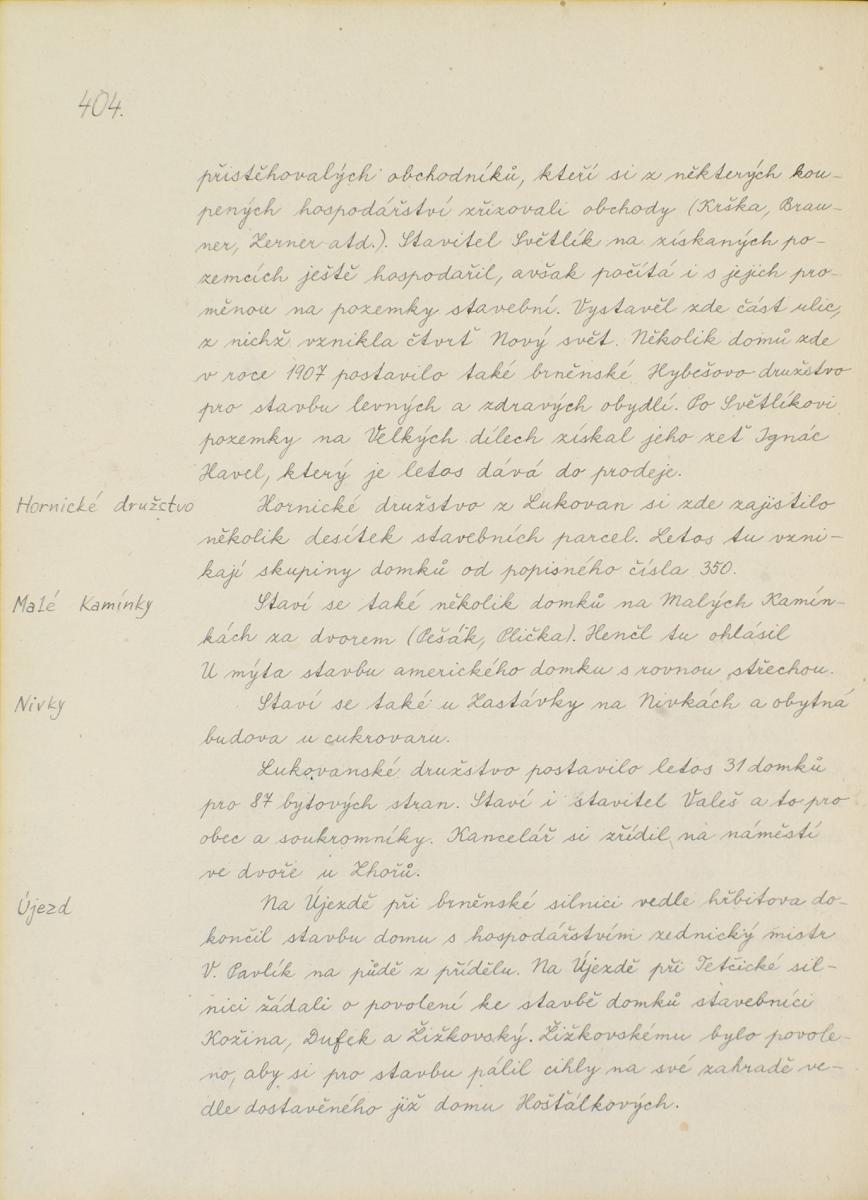 404.
přistěhovalých obchodníků, kteří si z některých kou-
pených hospodářství zřizovali obchody (Krška, Brau-
ner, Zerner atd.). Stavitel Světlík na získaných po-
zemcích ještě hospodařil, avšak počítá i s jejich pro-
měnou na pozemky stavební. Vystavěl zde část ulic,
z nichž vznikla čtvrť Nový svět. Několik domů zde
v roce 1907 postavilo také brněnské Hybešovo družstvo
pro stavbu levných a zdravých obydlí. Po Světlíkovi
pozemky na Velkých dílech získal jeho zeť Ignác
Havel, který je letos dává do prodeje.
Hornické družstvo Hornické družstvo z Lukovan si zde zajistilo
několik desítek stavebních parcel. Letos tu vzni-
kají skupiny domků od popisného čísla 350.
Malé Kamínky Staví se také několik domků na Malých Kamín-
kách za dvorem (Pešák, Plička). Henčl tu ohlásil
U mýta stavbu amerického domku s rovnou střechou.
Nivky Staví se také u Zastávky na Nivkách a obytná
budova u cukrovaru.
Lukovanské družstvo postavilo letos 31 domků
pro 87 bytových stran. Staví i stavitel Valeš a to pro
obec a soukromníky. Kancelář si zřídil na náměstí
ve dvoře u Zhořů.
Újezd Na Újezdě při brněnské silnici vedle hřbitova do-
končil stavbu domu s hospodářstvím zednický mistr
V. Pavlík na půdě z přídělu. Na Újezdě při Tetčické sil-
nici žádali o povolení ke stavbě domků stavebníci
Kožina, Dufek a Žižkovský. Žižkovskému bylo povole-
no, aby si pro stavbu pálil cihly na své zahradě ve-
dle dostavěného již domu Hošťálkových.